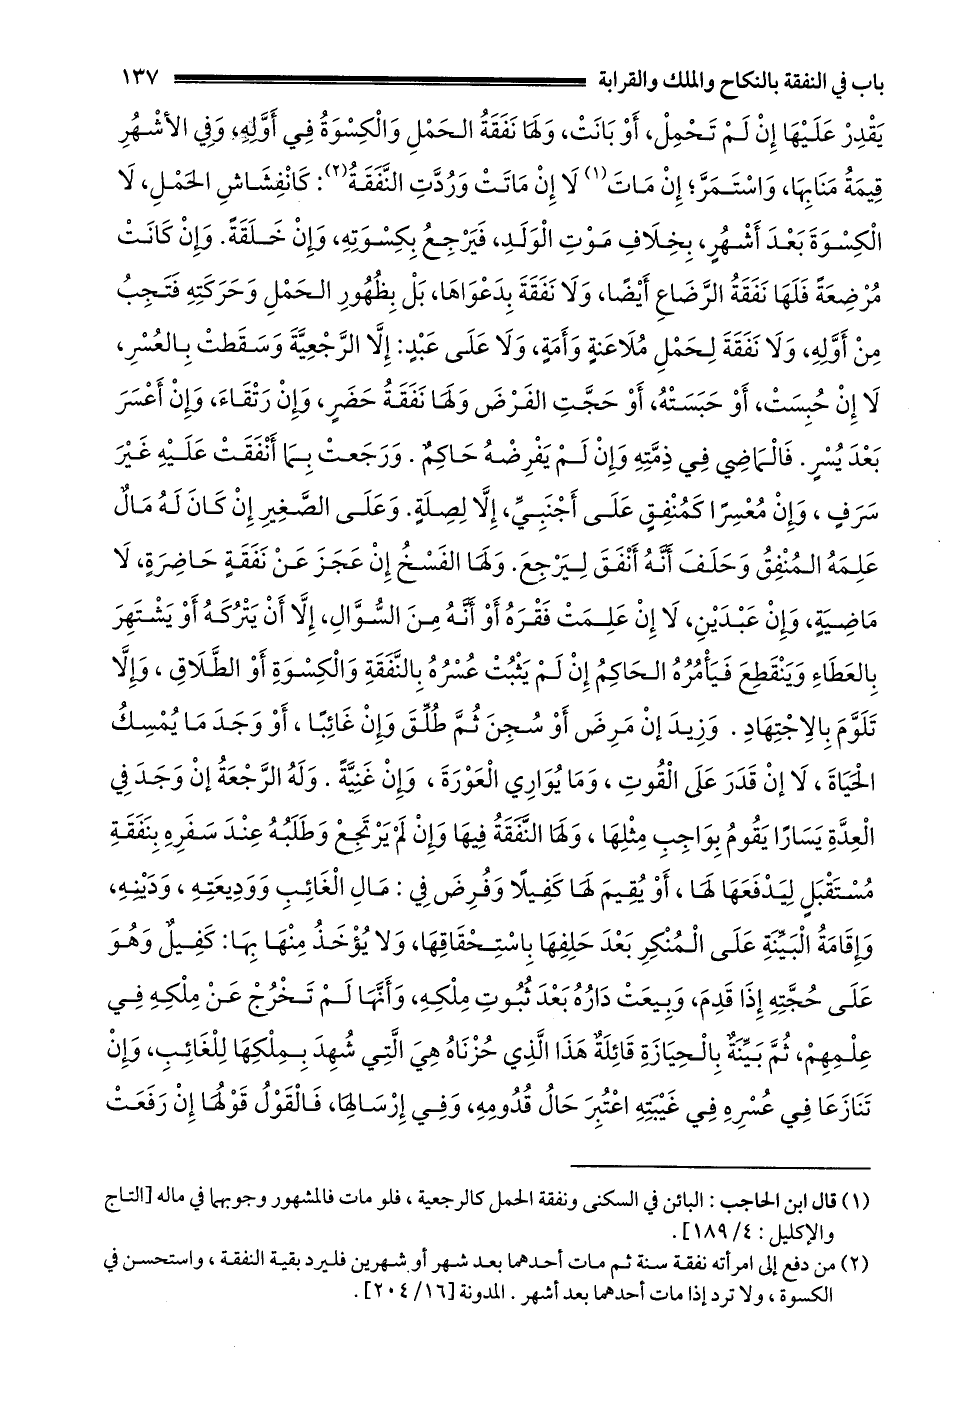 باب في النفقة بالنكاح والملك والقرابة ١٣٧
يَقْدِرْ عَلَيْهَا إِنْ لَمْ تَحْمِلْ، أَوْ بَانَتْ، وَلَهَا نَفَقَةُ الحَمْلِ وَالْكِسْوَةُ فِي أَوَّلِهِ، وَفِي الأَشْهُرِ
قِيمَةُ مَنَابِهَا، وَاسْتَمَرَّ؛ إِنْ مَاتَ(١) لَا إِنْ مَاتَتْ وَرُدَّتِ النَّفَقَةُ(٢): كَانْفِشَاشِ الحَمْلِ، لَا
الْكِسْوَةَ بَعْدَ أَشْهُرٍ، بِخِلَافِ مَوْتِ الْوَلَدِ، فَيَرْجِعُ بِكِسْوَتِهِ، وَإِنْ خَلَقَةً. وَإِنْ كَانَتْ
مُرْضِعَةً فَلَهَا نَفَقَةُ الرَّضَاعِ أَيْضًا، وَلَا نَفَقَةَ بِدَعْوَاهَا، بَلْ بِظُهُورِ الحَمْلِ وَحَرَكَتِهِ فَتَجِبُ
مِنْ أَوَّلِهِ، وَلَا نَفَقَةَ لِحَمْلِ مُلَاعَنَةٍ وَأَمَةٍ، وَلَا عَلَى عَبْدٍ: إِلَّا الرَّجْعِيَّةَ وَسَقَطَتْ بِالعُسْرِ،
لَا إِنْ حُبِسَتْ، أَوْ حَبَسَتْهُ، أَوْ حَجَّتِ الفَرْضَ وَلَهَا نَفَقَةُ حَضَرٍ، وَإِنْ رَتْقَاءَ، وَإِنْ أَعْسَرَ
بَعْدَ يُسْرٍ. فَالْمَاضِي فِي ذِمَّتِهِ وَإِنْ لَمْ يَفْرِضْهُ حَاكِمٌ. وَرَجَعتْ بِمَا أَنْفَقَتْ عَلَيْهِ غَيْرَ
سَرَفٍ، وَإِنْ مُعْسِرًا كَمُنْفِقٍ عَلَى أَجْنَبِيٍّ، إِلَّا لِصِلَةٍ. وَعَلَى الصَّغِيرِ إِنْ كَانَ لَهُ مَالٌ
عَلِمَهُ المُنْفِقُ وَحَلَفَ أَنَّهُ أَنْفَقَ لِيَرْجِعَ. وَلَهَا الفَسْخُ إِنْ عَجَزَ عَنْ نَفَقَةٍ حَاضِرَةٍ، لَا
مَاضِيَةٍ، وَإِنْ عَبْدَيْنِ، لَا إِنْ عَلِمَتْ فَقْرَهُ أَوْ أَنَّهُ مِنَ السُّؤَّالِ، إِلَّا أَنْ يَتْرُكَهُ أَوْ يَشْتَهِرَ
بِالعَطَاءِ وَيَنْقَطِعَ فَيَأْمُرُهُ الحَاكِمُ إِنْ لَمْ يَثْبُتْ عُسْرُهُ بِالنَّفَقَةِ وَالْكِسْوَةِ أَوْ الطَّلَاقِ، وَإِلَّا
تَلَوَّمَ بِالِاجْتِهَادِ. وَزِيدَ إِنْ مَرِضَ أَوْ سُجِنَ ثُمَّ طُلِّقَ وَإِنْ غَائِبًا، أَوْ وَجَدَ مَا يُمْسِكُ
الحَيَاةَ، لَا إِنْ قَدَرَ عَلَى الْقُوتِ، وَمَا يُوَارِي الْعَوْرَةَ، وَإِنْ غَنِيَّةً. وَلَهُ الرَّجْعَةُ إِنْ وَجَدَ فِي
الْعِدَّةِ يَسَارًا يَقُومُ بِوَاجِبِ مِثْلِهَا، وَلَهَا النَّفَقَةُ فِيهَا وَإِنْ لَمْ يَرْتَجِعْ وَطَلَبُهُ عِنْدَ سَفَرِهِ بِنَفَقَةِ
مُسْتَقْبَلٍ لِيَدْفَعَهَا لَهَا، أَوْ يُقِيمَ لَهَا كَفِيلًا وَفُرِضَ فِي: مَالِ الْغَائِبِ وَوَدِيعَتِهِ، وَدَيْنِهِ،
وَإِقَامَةُ الْبَيِّنَةِ عَلَى الْمُنْكِرِ بَعْدَ حَلِفِهَا بِاسْتِحْقَاقِهَا، وَلَا يُؤْخَذُ مِنْهَا بِهَا: كَفِيلٌ وَهُوَ
عَلَى حُجَّتِهِ إِذَا قَدِمَ، وَبِيعَتْ دَارُهُ بَعْدَ ثُبُوتِ مِلْكِهِ، وَأَنَّهَا لَمْ تَخْرُجْ عَنْ مِلْكِهِ فِي
عِلْمِهِمْ، ثُمَّ بَيِّنَةٌ بِالْحِيَازَةِ قَائِلَةٌ هَذَا الَّذِي حُزْنَاهُ هِيَ الَّتِي شُهِدَ بِمِلْكِهَا لِلْغَائِبِ، وَإِنْ
تَنَازَعَا فِي عُسْرِهِ فِي غَيْبَتِهِ اعْتُبِرَ حَالُ قُدُومِهِ، وَفِي إِرْسَالِهَا، فَالْقَوْلُ قَوْلُهَا إِنْ رَفَعَتْ
(١) قال ابن الحاجب: البائن في السكنى ونفقة الحمل كالرجعية، فلو مات فالمشهور وجوبهما في ماله [التاج
والإكليل: ٤/ ١٨٩].
(٢) من دفع إلى امرأته نفقة سنة ثم مات أحدهما بعد شهر أو شهرين فليرد بقية النفقة، واستحسن في
الكسوة، ولا ترد إذا مات أحدهما بعد أشهر. المدونة [١٦/ ٢٠٤].